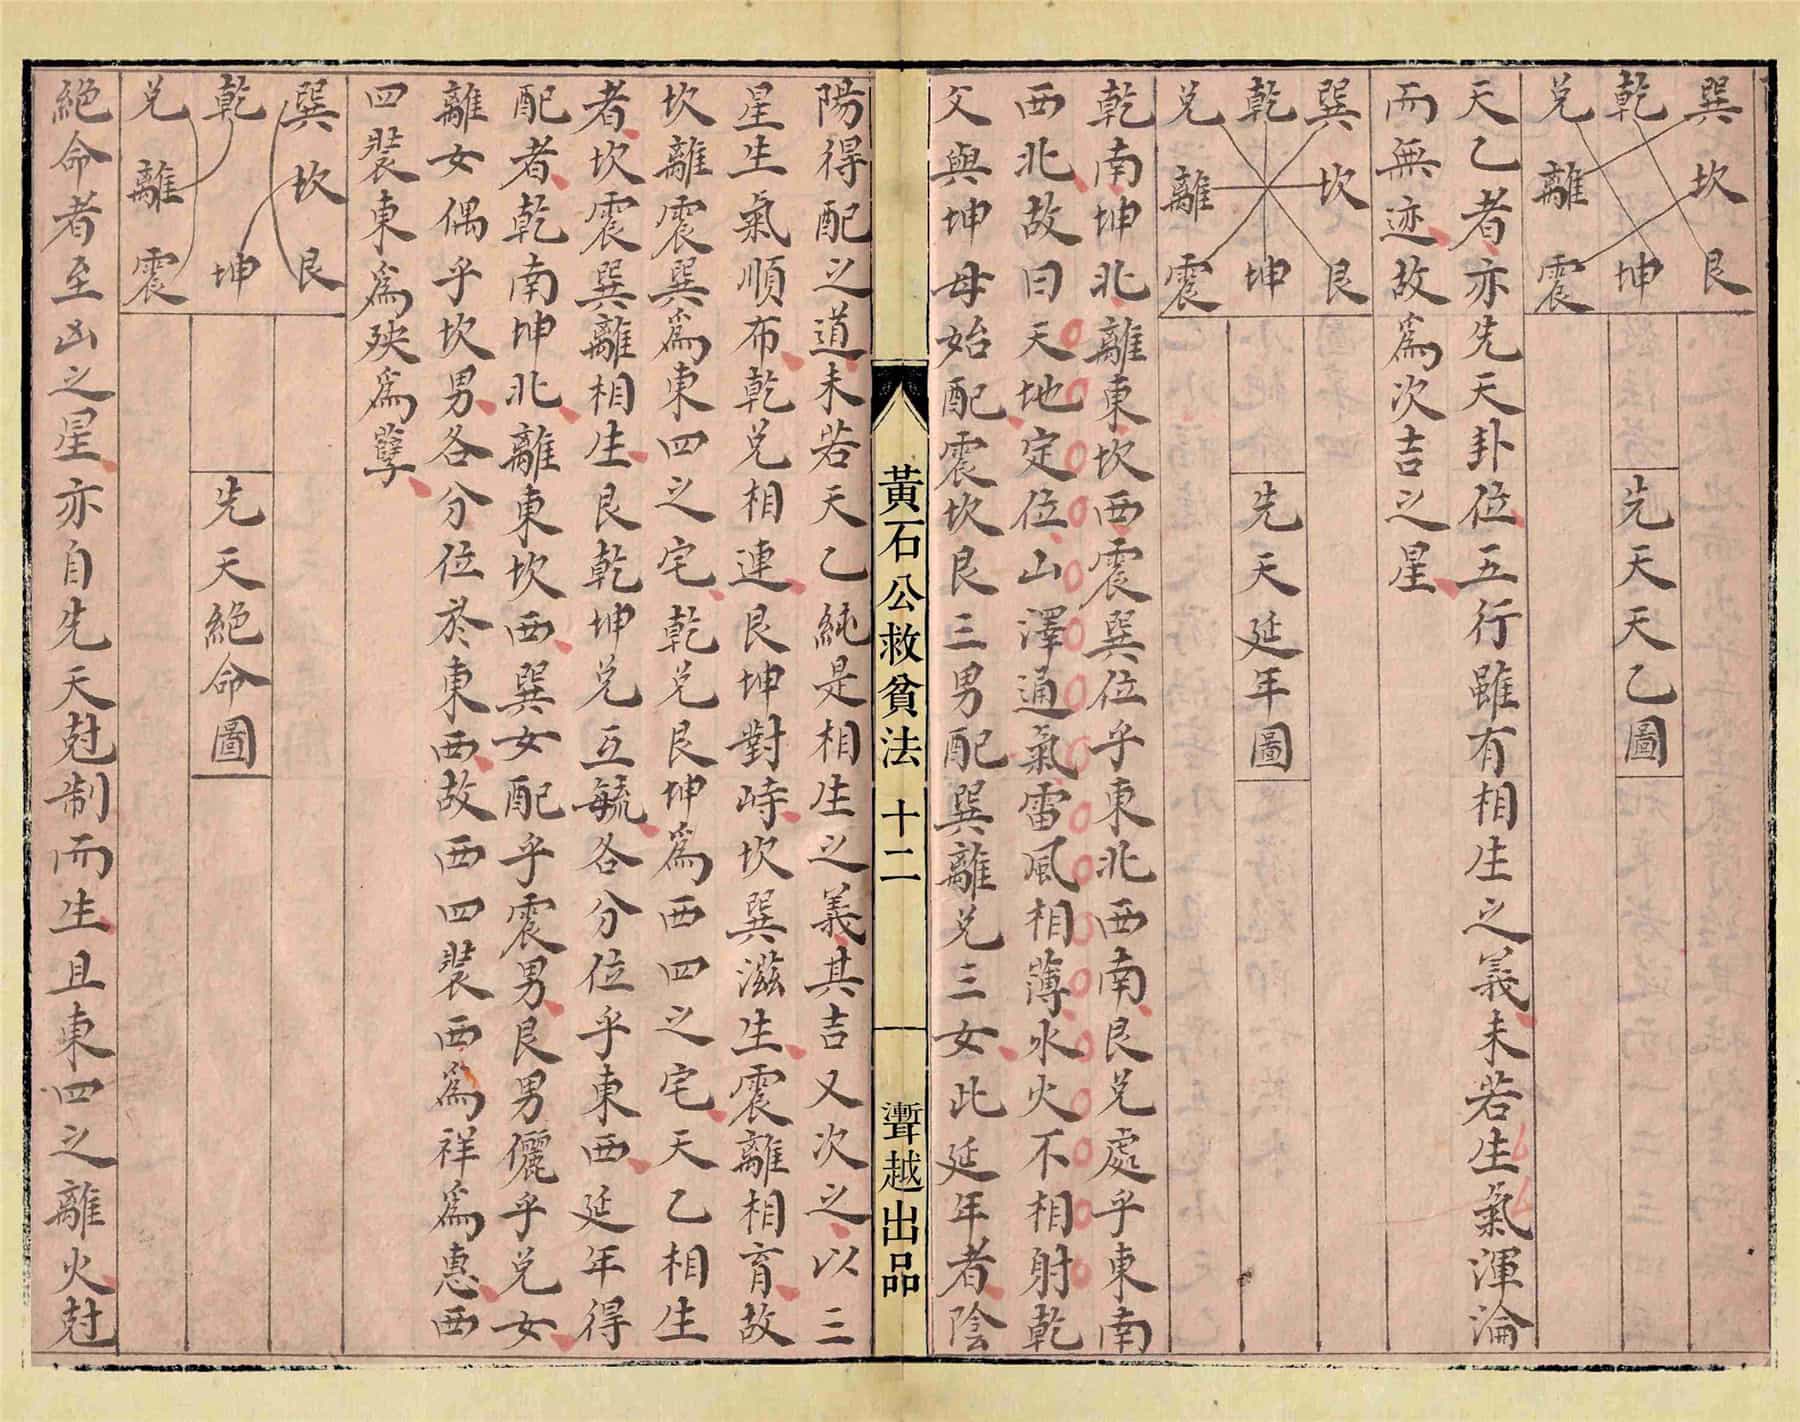 巽坎艮
乾坤
兌離震
先天天乙圖
天乙者亦先天卦位五行雖有相生之義未若生氣渾淪
而無迹故爲次吉之星
巽坎艮
乾坤
兌離震
先天延年圖
乾南坤北離東坎西震巽位乎東北西南艮兌處乎東南
西北故曰天地定位山澤通氣雷風相薄水火不相射乾
父與坤母始配震坎艮三男配巽離兌三女此延年者陰
黃石公救貧法 十二 聻越出品
陽得配之道未若天乙純是相生之義其吉又次之以三
星生氣順布乾兌相連艮坤對峙坎巽滋生震離相育故
坎離震巽爲東四之宅乾兌艮坤爲西四之宅天乙相生
者坎震巽離相生艮乾坤兌互毓各分位乎東西延年得
配者乾南坤北離東坎西巽女配乎震男艮男儷乎兌女
離女偶乎坎男各分位於東西故西四裝西爲祥爲惠西
四裝東爲殃爲孽
巽坎艮
乾坤
兌離震
先天絕命圖
絕命者至凶之星亦自先天尅制而生且東四之離火尅